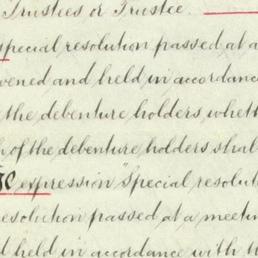 Trustees or Trustee.
special resolution passed at a
vened and held in accordanc
the debenture holders wheth
h of the debenture holders shal
expression "Special resolut
resolution passed at a meetin
d held in accordance with th